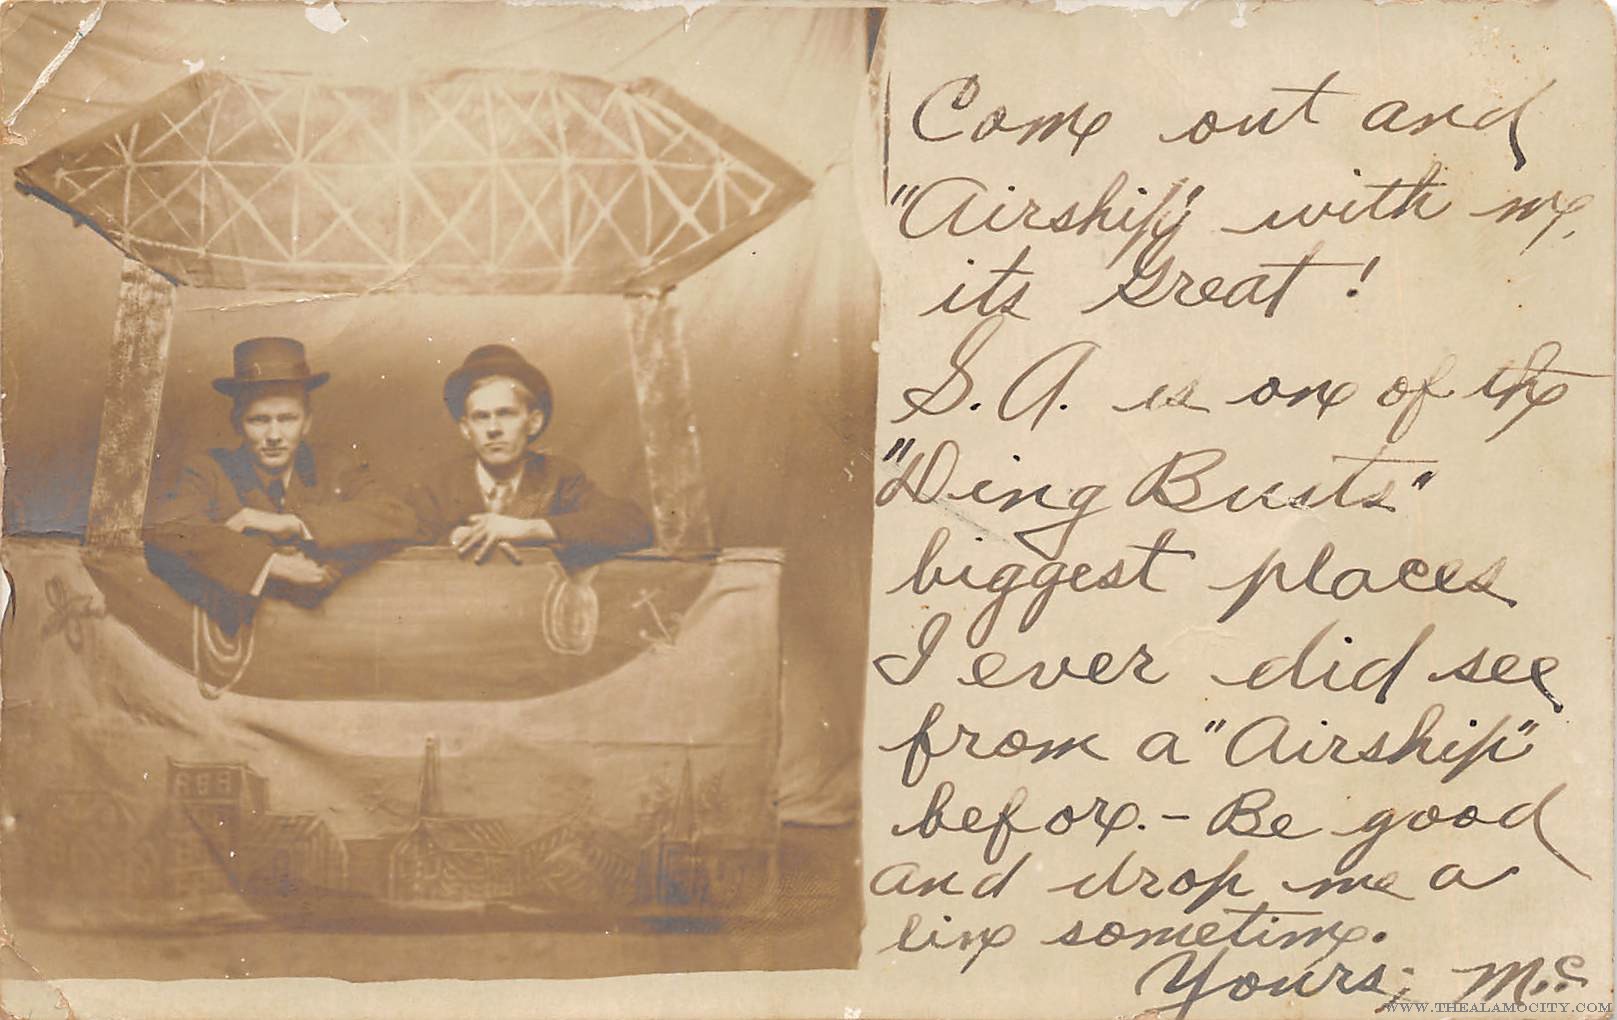 Come out and
"Airship" with me,
its great!
S. A. is one of the
"Ding Busts"
biggest places
I ever did see
from a "Airship"
before. - Be good
and drop me a
line sometime.
Yours; Mc
WWW.THEALAMOCITY.COM